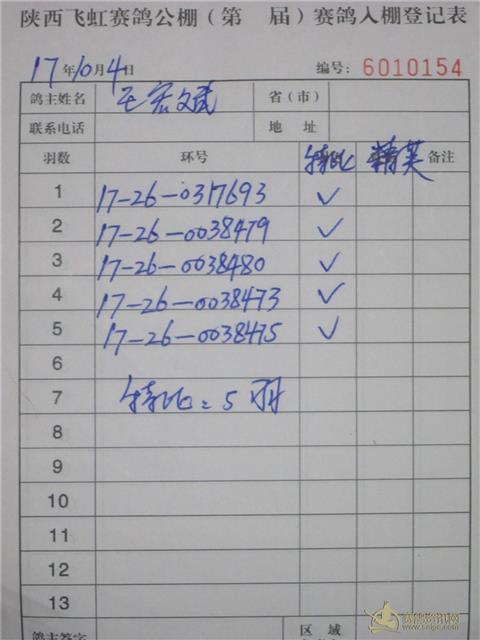 陕西飞虹赛鸽公棚（第 届）赛鸽入棚登记表
17年10月4日 编号：6010154
鸽主姓名 王宏文斌 省（市）
联系电话 地 址
羽数 环号 特比 精英 备注
1 17-26-0317693 ✓
2 17-26-0038479 ✓
3 17-26-0038480 ✓
4 17-26-0038473 ✓
5 17-26-0038475 ✓
6
7 特比：5羽
8
9
10
11
12
13
鸽主签字 区域